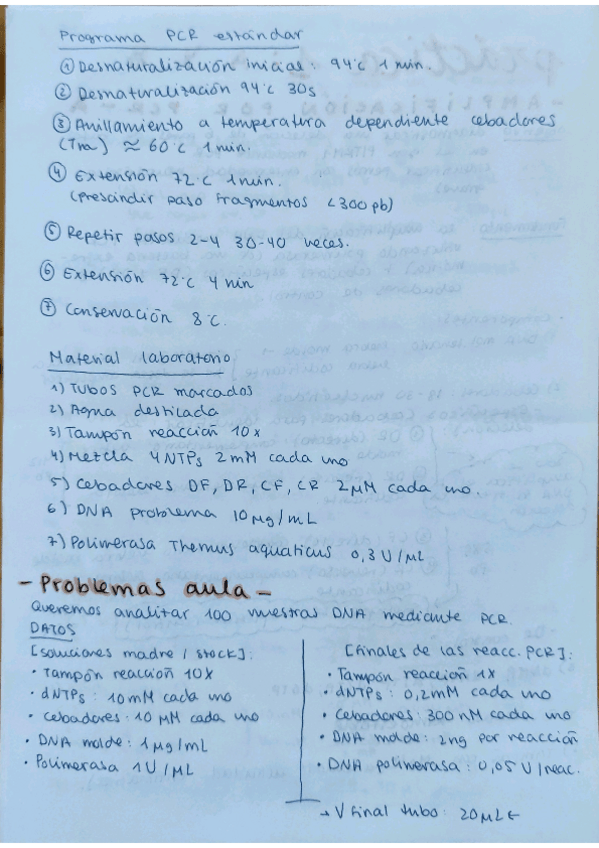 Programa PCR estándar
① Desnaturalización inicial: 94ºC 1 min.
② Desnaturalización 94ºC 30s
③ Anillamiento a temperatura dependiente cebadores
(Tm) ≈ 60ºC 1 min.
④ Extensión 72ºC 1 min.
(prescindir paso fragmentos <300 pb)
⑤ Repetir pasos 2-4 30-40 veces.
⑥ Extensión 72ºC 4 min
⑦ Conservación 8ºC.
Material laboratorio
1) TUBOS PCR marcados
2) Agua destilada
3) Tampón reacción 10x
4) Mezcla 4NTPs 2mM cada uno
5) Cebadores DF, DR, CF, CR 2μM cada uno.
6) DNA problema 10μg/mL
7) Polimerasa Themus aquaticus 0,3U/μL
- Problemas aula -
Queremos analitar 100 muestras DNA mediante PCR.
DATOS
[soluciones madre / stock]:
· Tampón reacción 10X
· dNTPs: 10mM cada uno
· Cebadores: 10 μM cada uno
· DNA molde: 1μg/mL
· Polimerasa 1U/μL
[finales de las reacc. PCR]:
· Tampón reacción 1x
· dNTPs: 0,2mM cada uno
· Cebadores: 300nM cada uno
· DNA molde: 2ng por reacción
· DNA polimerasa: 0,05 U/reac.
→ V final tubo: 20μL ←